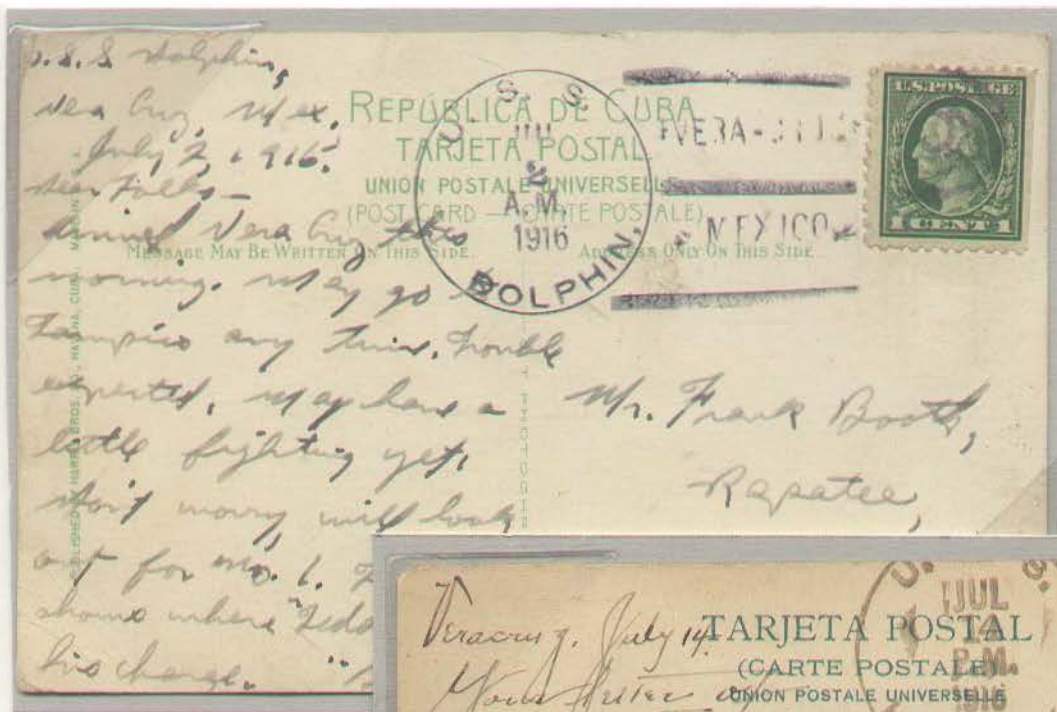 U.S.S. Dolphin,
Vera Cruz, Mex.
July 2, 1916.
Dear Folks—
Arrived Vera Cruz this
morning. May go to
Tampico any time. Trouble
expected. May have a
little fighting yet.
Don't worry, will look
out for No. 1.
shows where "Tedd
his charge.
REPÚBLICA DE CUBA
TARJETA POSTAL
UNION POSTALE UNIVERSELLE
(POST CARD — CARTE POSTALE)
MESSAGE MAY BE WRITTEN ON THIS SIDE
ADDRESS ONLY ON THIS SIDE
HARRIS BROS. CO., HAVANA, CUBA.
U. S. S.
JUL
2
A.M.
1916
DOLPHIN,
VERA-
MEXICO
U.S. POSTAGE
1 CENT 1
Mr. Frank Booth,
Rapatee,
Veracruz, July 14.
Your letter of
TARJETA POSTAL
(CARTE POSTALE)
UNION POSTALE UNIVERSELLE
U. S.
JUL
14
P.M.
1916